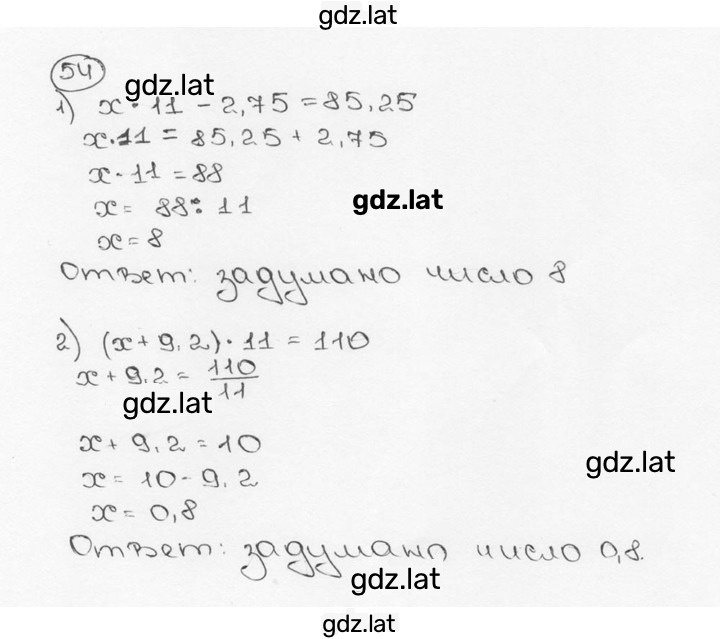 gdz.lat
54
gdz.lat
1) x · 11 - 2,75 = 85,25
x · 11 = 85,25 + 2,75
x · 11 = 88
gdz.lat
x = 88 : 11
x = 8
Ответ: задумано число 8
2) (x + 9,2) · 11 = 110
x + 9,2 = 110/11
gdz.lat
x + 9,2 = 10
gdz.lat
x = 10 - 9,2
x = 0,8
Ответ: задумано число 0,8.
gdz.lat
gdz.lat